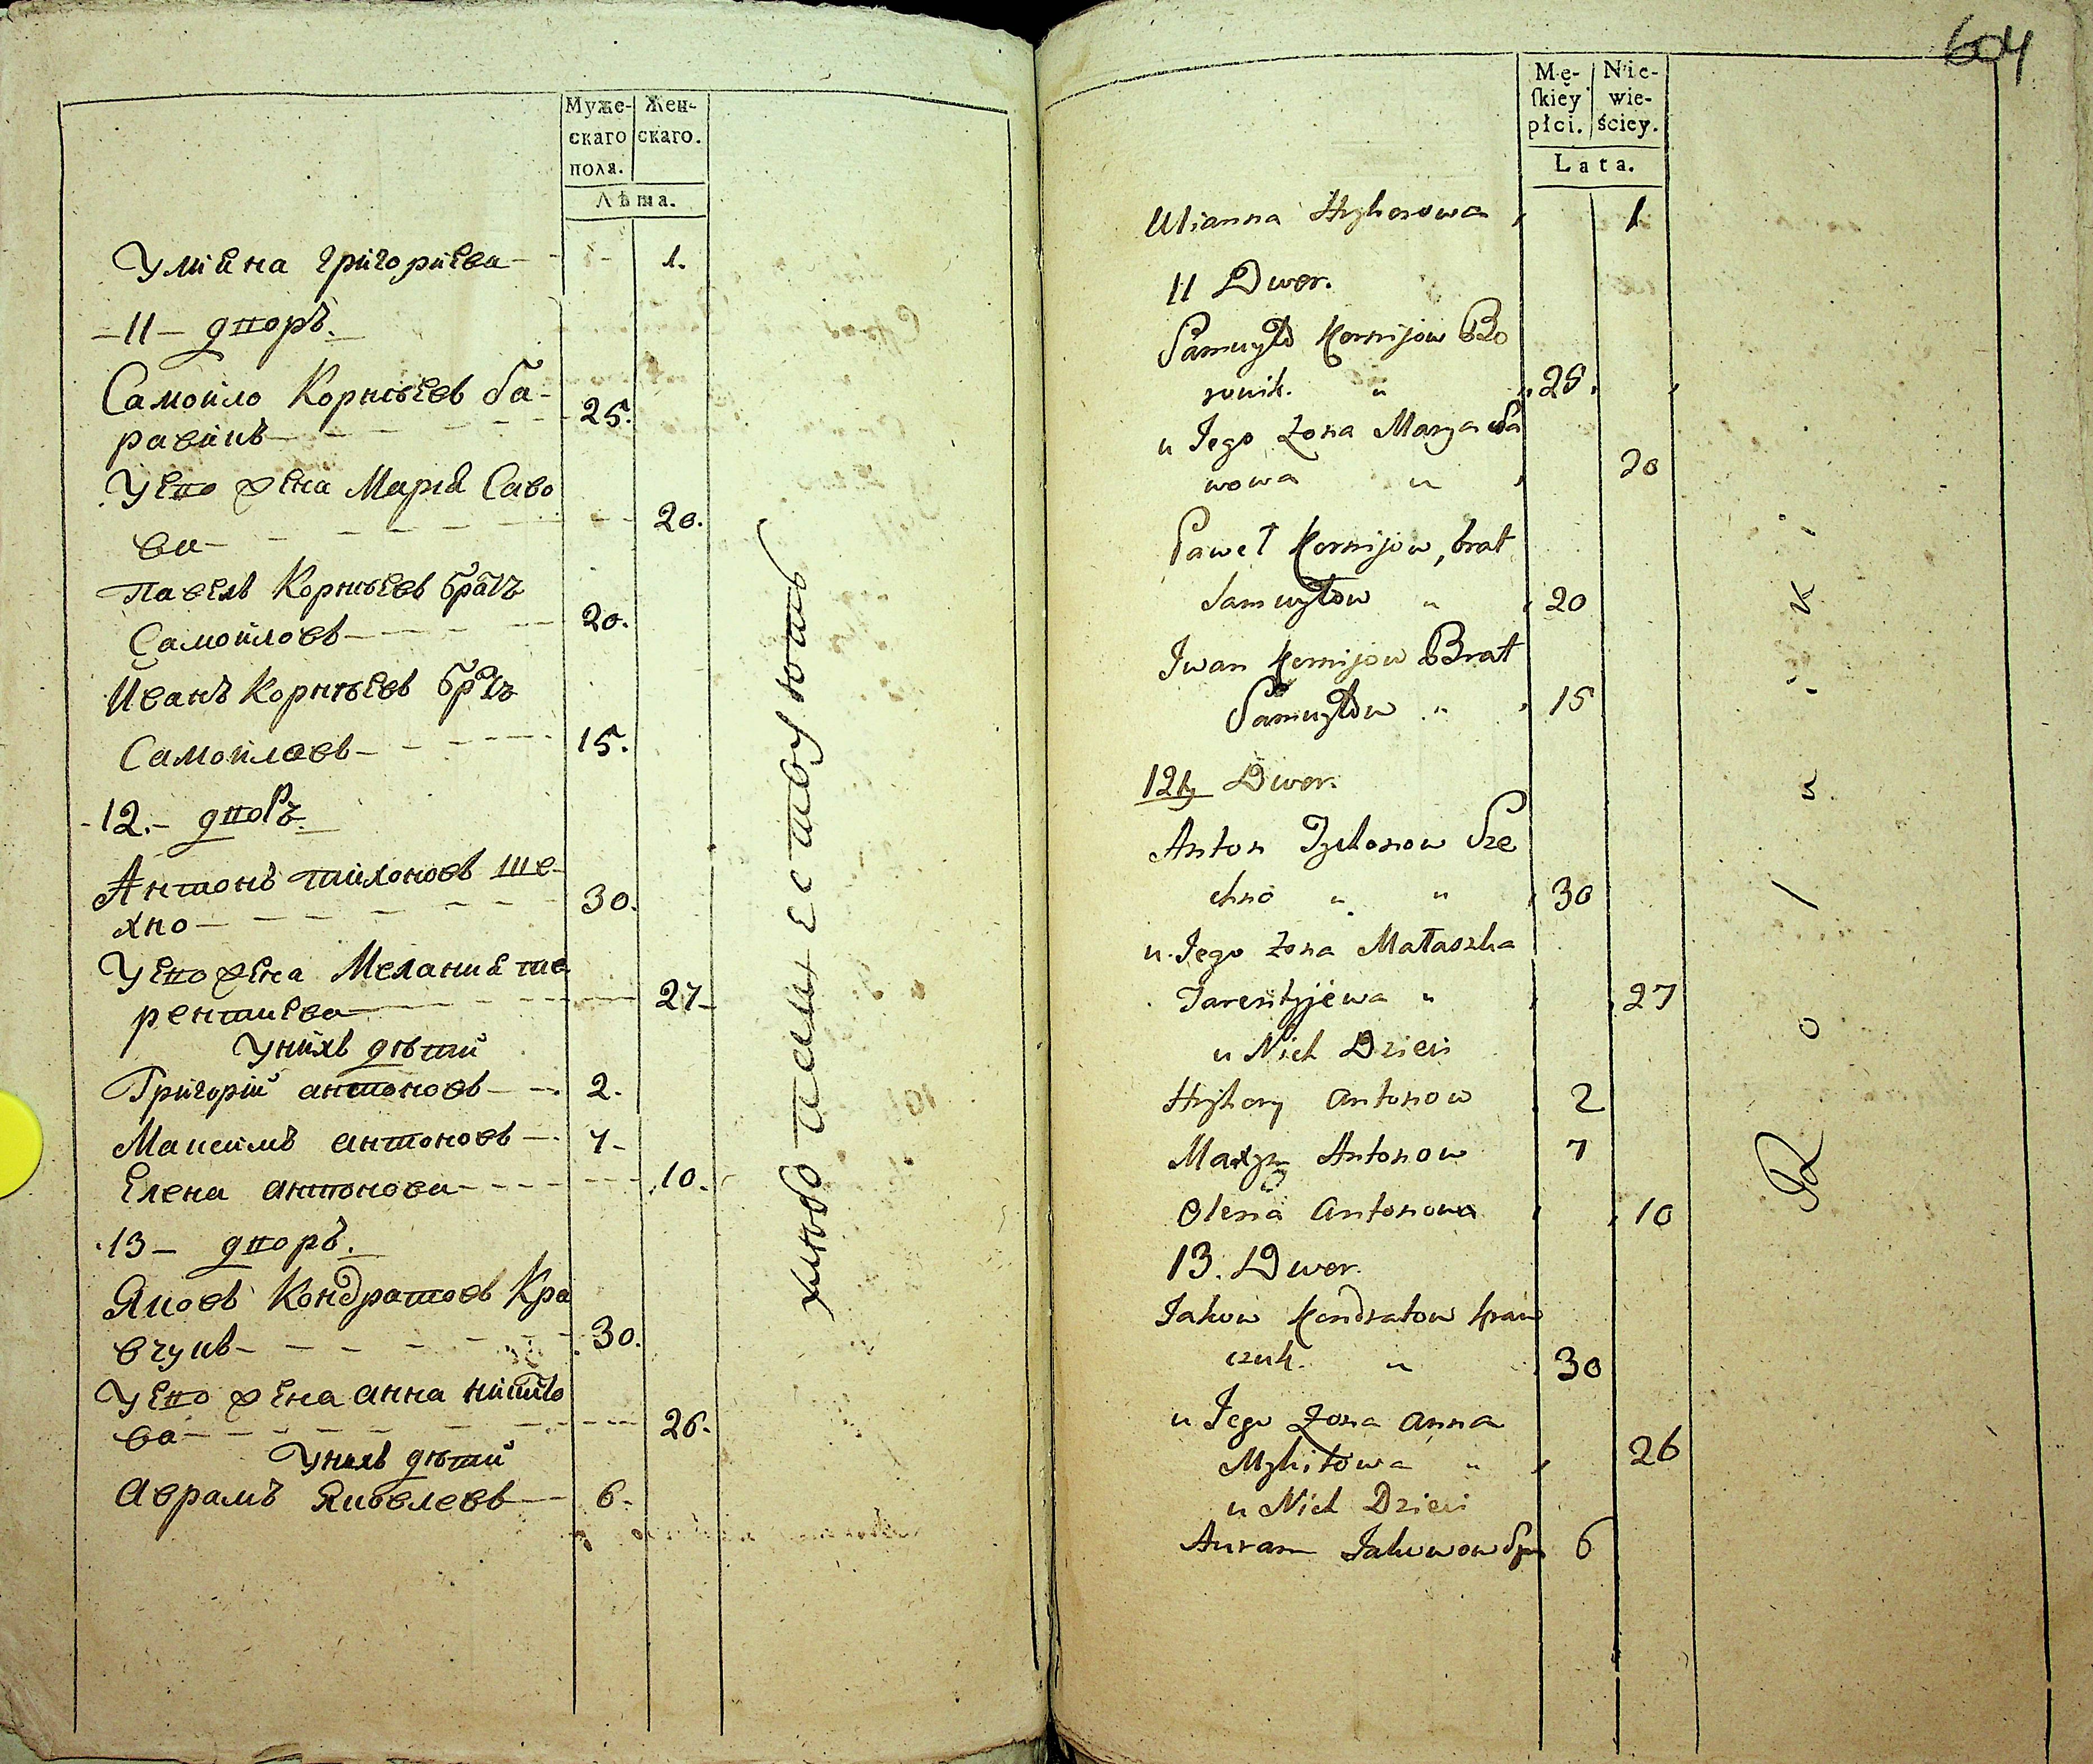 Муже-
скаго
пола.
Жен-
скаго.
Лѣта.
Улияна григориева 1.
11 дворъ.
Самойло Корнѣев ба-
равикъ 25.
У его жена Мария Саво
ва 20.
Павелъ Корнѣев братъ
Самойлов 20.
Иванъ Корнѣев братъ
Самойлов 15.
12. дворъ.
Антонъ тихонов ше-
хно 30.
У его жена Мелания те
рентиева 27
У них дѣти
Григорий антонов 2.
Максимъ антонов 7
Елена антонова 10.
13 дворъ.
Яков Кондратов Кра
вчукъ 30.
У его жена анна никито
ва 26.
У них дѣти
Аврамъ Яковлев 6.
604
Mę-
skiey
płci.
Nie-
wie-
ściey.
Lata.
Ulianna Hryhorowa 1
11 Dwor.
Samuyło Kornijow Bo
rowik. 25.
u Jego Żona Marya Sa
wowa 20
Paweł Kornijow, brat
Samuyłow 20
Iwan Kornijow Brat
Samuyłow 15
12ty Dwor.
Anton Tychonow Sze
chno 30
u Jego Żona Małaszka
Tarentyjewa 27
u Nich Dzieci
Hryhory Antonow 2
Maxym Antonow 7
Olena Antonowa 10
13. Dwor.
Jakow Kondratow Kraw
czuk. 30
u Jego Żona Anna
Mykitowa 26
u Nich Dzieci
Auram Jakowow Syn 6